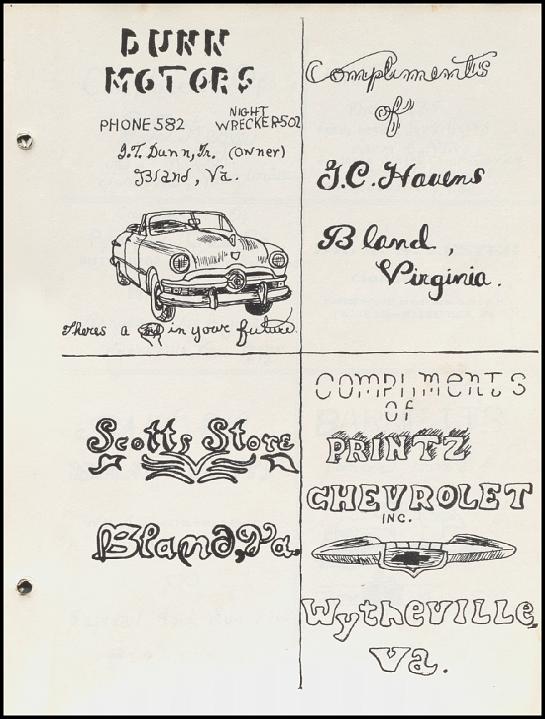 DUNN
MOTORS
PHONE 582
NIGHT
WRECKER-502
J.T. Dunn, Jr. (owner)
Bland, Va.
Theres a Ford in your future.
Compliments
of
J.C. Havens
Bland,
Virginia.
Scotts Store
Bland, Va.
COMPLIMENTS
OF
PRINTZ
CHEVROLET
INC.
WytheVILLE,
Va.